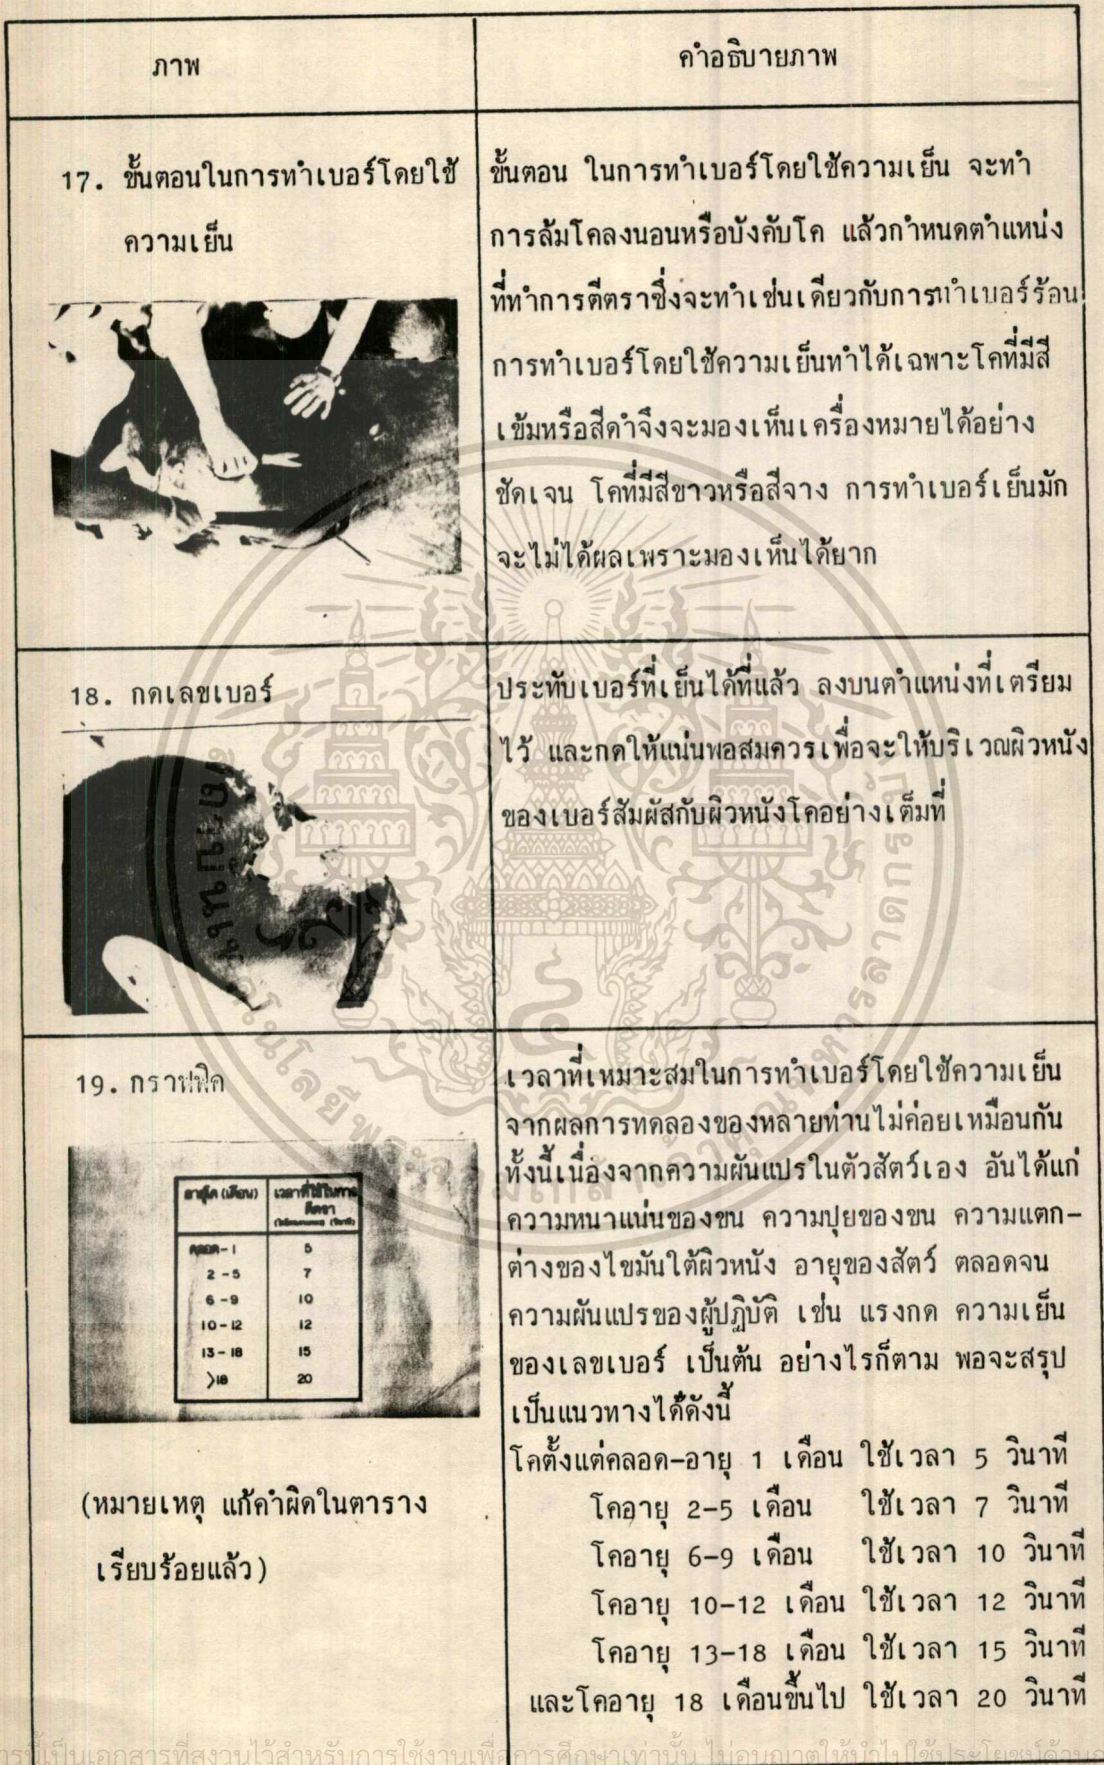 ภาพ
คำอธิบายภาพ
17. ขั้นตอนในการทำเบอร์โดยใช้
ความเย็น
ขั้นตอน ในการทำเบอร์โดยใช้ความเย็น จะทำ
การล้มโคลงนอนหรือบังคับโค แล้วกำหนดตำแหน่ง
ที่ทำการตีตราซึ่งจะทำเช่นเดียวกับการทำเบอร์ร้อน
การทำเบอร์โดยใช้ความเย็นทำได้เฉพาะโคที่มีสี
เข้มหรือสีดำจึงจะมองเห็นเครื่องหมายได้อย่าง
ชัดเจน โคที่มีสีขาวหรือสีจาง การทำเบอร์เย็นมัก
จะไม่ได้ผลเพราะมองเห็นได้ยาก
18. กดเลขเบอร์
ประทับเบอร์ที่เย็นได้ที่แล้ว ลงบนตำแหน่งที่เตรียม
ไว้ และกดให้แน่นพอสมควรเพื่อจะให้บริเวณผิวหนัง
ของเบอร์สัมผัสกับผิวหนังโคอย่างเต็มที่
19. กราฟฟิค
อายุโค (เดือน) เวลาที่ใช้ในการ
ตีตรา
(วินาที)
คลอด-1 5
2-5 7
6-9 10
10-12 12
13-18 15
>18 20
(หมายเหตุ แก้คำผิดในตาราง
เรียบร้อยแล้ว)
เวลาที่เหมาะสมในการทำเบอร์โดยใช้ความเย็น
จากผลการทดลองของหลายท่านไม่ค่อยเหมือนกัน
ทั้งนี้เนื่องจากความผันแปรในตัวสัตว์เอง อันได้แก่
ความหนาแน่นของขน ความปุยของขน ความแตก-
ต่างของไขมันใต้ผิวหนัง อายุของสัตว์ ตลอดจน
ความผันแปรของผู้ปฏิบัติ เช่น แรงกด ความเย็น
ของเลขเบอร์ เป็นต้น อย่างไรก็ตาม พอจะสรุป
เป็นแนวทางได้ดังนี้
โคตั้งแต่คลอด-อายุ 1 เดือน ใช้เวลา 5 วินาที
โคอายุ 2-5 เดือน ใช้เวลา 7 วินาที
โคอายุ 6-9 เดือน ใช้เวลา 10 วินาที
โคอายุ 10-12 เดือน ใช้เวลา 12 วินาที
โคอายุ 13-18 เดือน ใช้เวลา 15 วินาที
และโคอายุ 18 เดือนขึ้นไป ใช้เวลา 20 วินาที
สถาบันเทคโนโลยีพระจอมเกล้าเจ้าคุณทหารลาดกระบัง
ารนี้เป็นเอกสารที่สงวนไว้สำหรับการใช้งานเพื่อการศึกษาเท่านั้น ไม่อนุญาตให้นำไปใช้ประโยชน์ด้าน